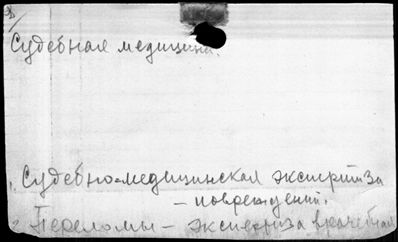 Судебная медицина.
1. Судебно-медицинская экспертиза
— повреждений.
2. Переломы — экспертиза врачебная